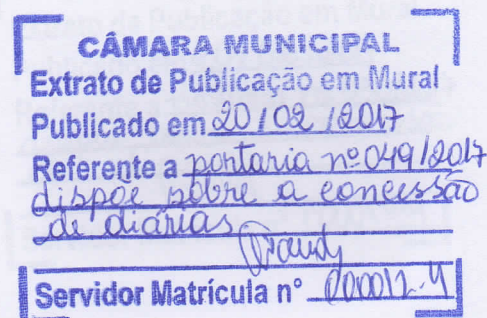 CÂMARA MUNICIPAL
Extrato de Publicação em Mural
Publicado em 20/02/2017
Referente a portaria nº 049/2017
dispõe sobre a concessão
de diárias
Servidor Matrícula nº 000012-4